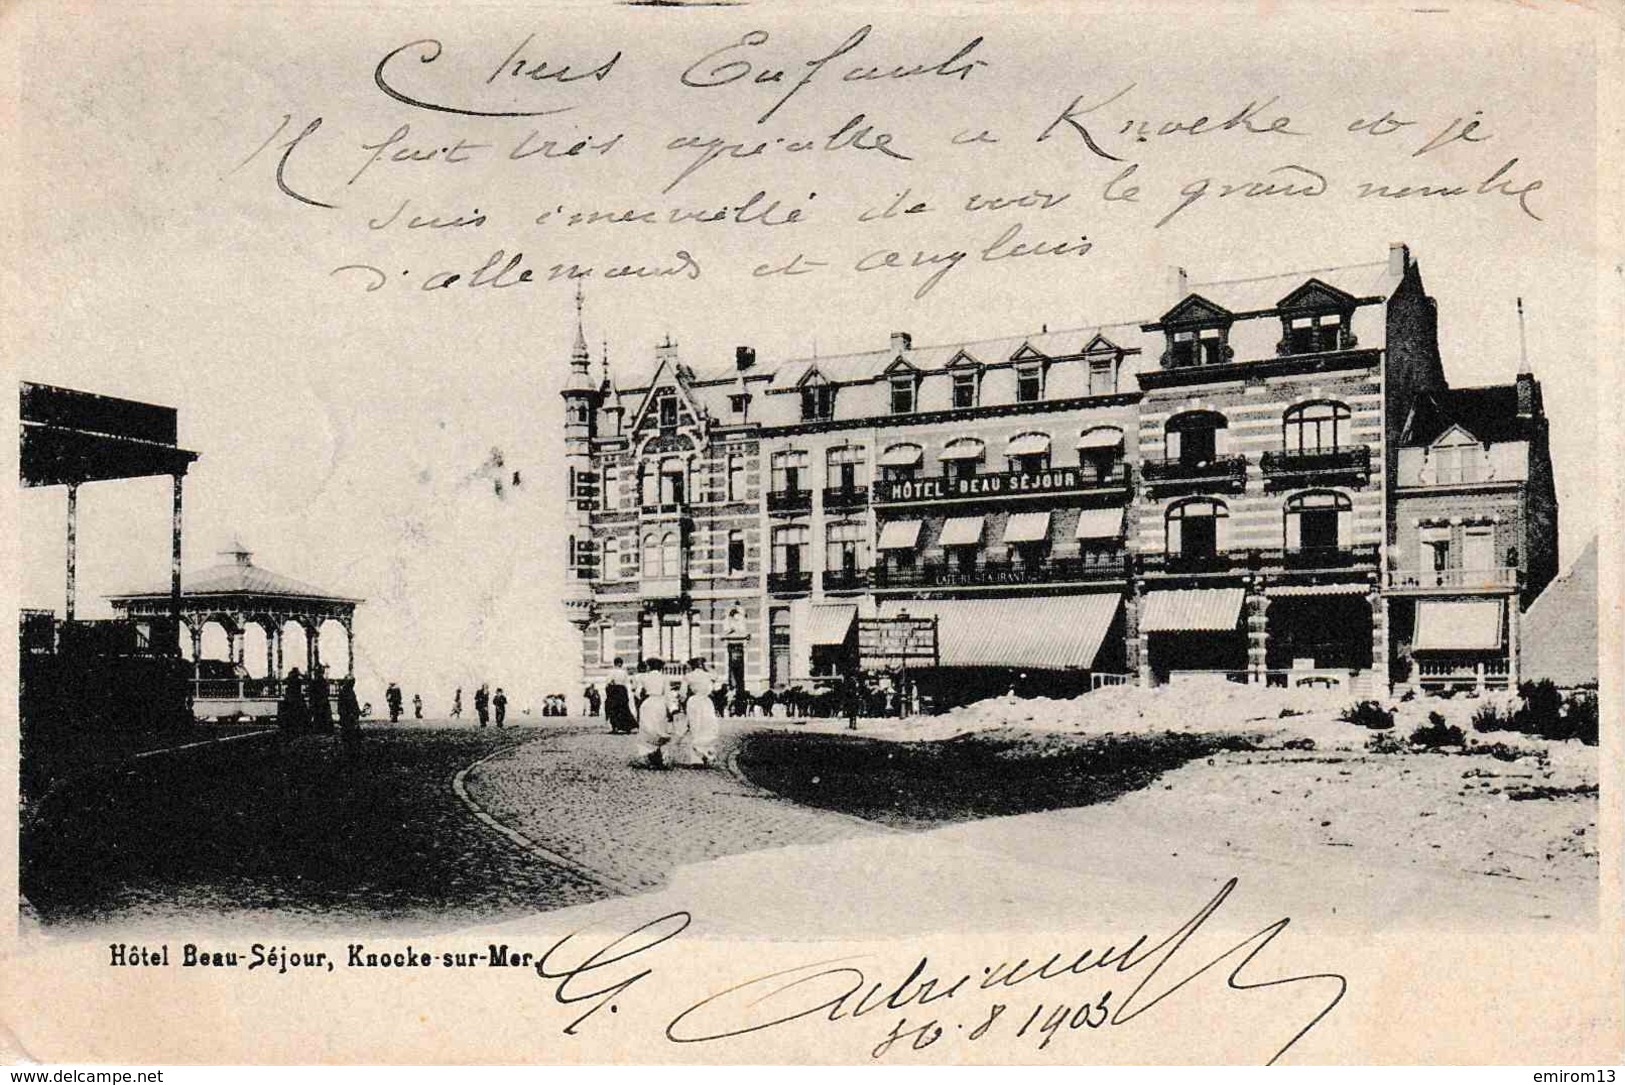 Chers Enfants
Il fait très agréable a Knocke et je
suis émerveillé de voir le grand nombre
d'allemands et anglais
HÔTEL BEAU SÉJOUR
CAFÉ RESTAURANT
Hôtel Beau-Séjour, Knocke-sur-Mer.
G.
30.8 1903
www.delcampe.net
emirom13